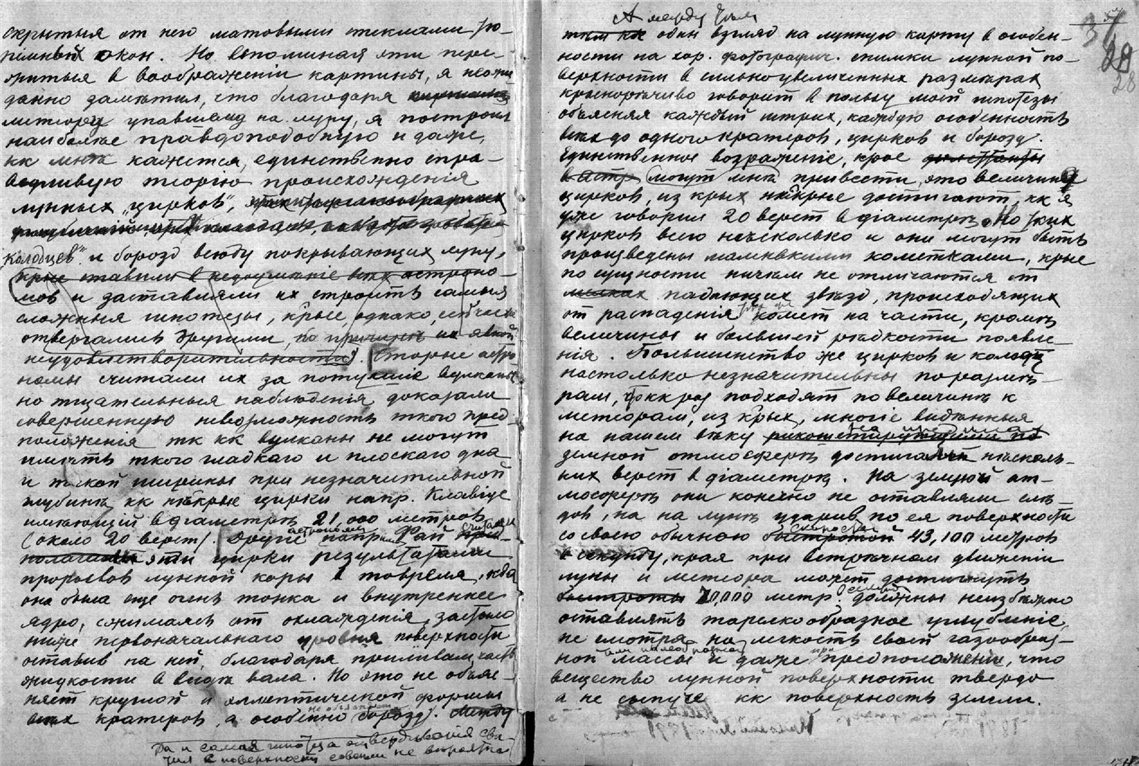 скрытыя от него матовыми стеклами тю-
ремных окон. Но вспоминая эти пере-
житыя в воображении картины, я неожи
данно заметил, что благодаря
метеору упавшему на луну, я построил
наиболее правдоподобную и даже,
кк мне кажется, единственно спра-
ведливую теорию происхождения
лунных „цирков",
колодцев" и борозд всюду покрывающих луну,
крые ставили в недоумение всех астроно-
мов и заставляли их строить самыя
сложныя гипотезы, крые, однако, сейчас
отвергались другими, по причине их явной
неудовлетворительности. Старые астро
номы считали их за потухшие вулканы
но тщательныя наблюдения доказали
совершенную невозможность ткого пред
положения тк кк вулканы не могут
иметь ткого гладкаго и плоскаго дна
и ткой ширины при незначительной
глубине кк некрые цирки напр. Клавiус
имеющий в дiаметре 21,000 метров
(около 20 верст). Другие астрономы напр. Фай считали
эти цирки результатами
прорывов лунной коры в то время, кгда
она была еще очень тонка и внутреннее
ядро, сжимаясь от охлаждения, застыло
ниже первоначального уровня поверхности
оставив на ней, благодаря приливам, часть
жидкости в виде вала. Но это не объяс-
няет круглой и эллиптической формы
всех кратеров, а особенно борозд.
Да и самая гипотеза отвердевания све-
тил с поверхности совсем не вероятна
А между тем
один взгляд на лунную карту в особен-
ности на хор. фотографич. снимки лунной по-
верхности в сильно увеличенных размерах
красноречиво говорит в пользу моей гипотезы
объясняя каждый штрих, каждую особенность
всех до одного кратеров, цирков и борозд.
Единственное возражение, крое
могут мне привести, это величина
цирков, из крых некрые достигают, кк я
уже говорил 20 верст в дiаметре. Но тких
цирков всего несколько и они могут быть
произведены маленькими кометками, крые
по сущности ничем не отличаются от
падающих звезд, происходящих
от распадения комет на части, кроме
величины и большей редкости появле-
ния. Большинство же цирков и колодц
настолько незначительны по разме-
рам, что как раз подходят по величине к
метеорам, из крых, многiе виденныя
на нашем веку на пределах
земной атмосферы достигали несколь-
ких верст в дiаметре. На земной ат-
мосфере они конечно не оставляли сле-
дов, но на луне ударив по ея поверхности
со своею обычною скоростью 43,100 метров
в секунду, края при встречном движении
луны и метеора может достигнуть
70,000 метр. должны неизбежно
оставлять тарелкообразное углубление
не смотря на легкость своей газообраз-
ной массы и даже при предположении, что
вещество лунной поверхности твердо
а не сыпуче кк поверхность земли.
28